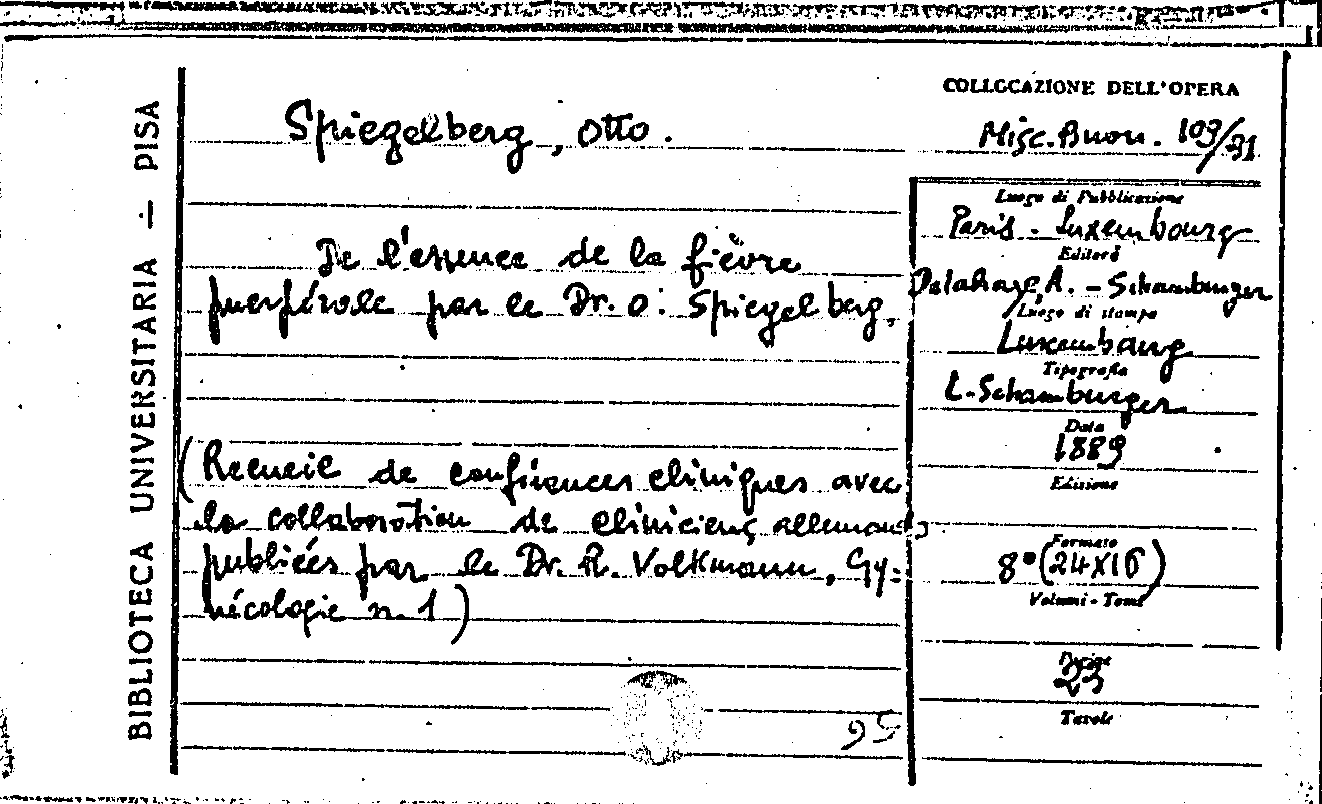 BIBLIOTECA UNIVERSITARIA — PISA
Spiegelberg, Otto.
De l'essence de la fièvre
puerpérale par le Dr. O. Spiegelberg.
(Recueil de conférences cliniques avec
la collaboration de cliniciens allemands
publiées par le Dr. R. Volkmann, Gy=
nécologie n. 1)
95
COLLOCAZIONE DELL'OPERA
Misc. Buon. 103/31
Luogo di Pubblicazione
Paris - Luxembourg
Editore
Delahaye, A. - Schamburger
Luogo di stampa
Luxembourg
Tipografia
L. Schamburger
Data
1889
Edizione
Formato
8° (24x16)
Volumi - Tomi
Pagine
23
Tavole